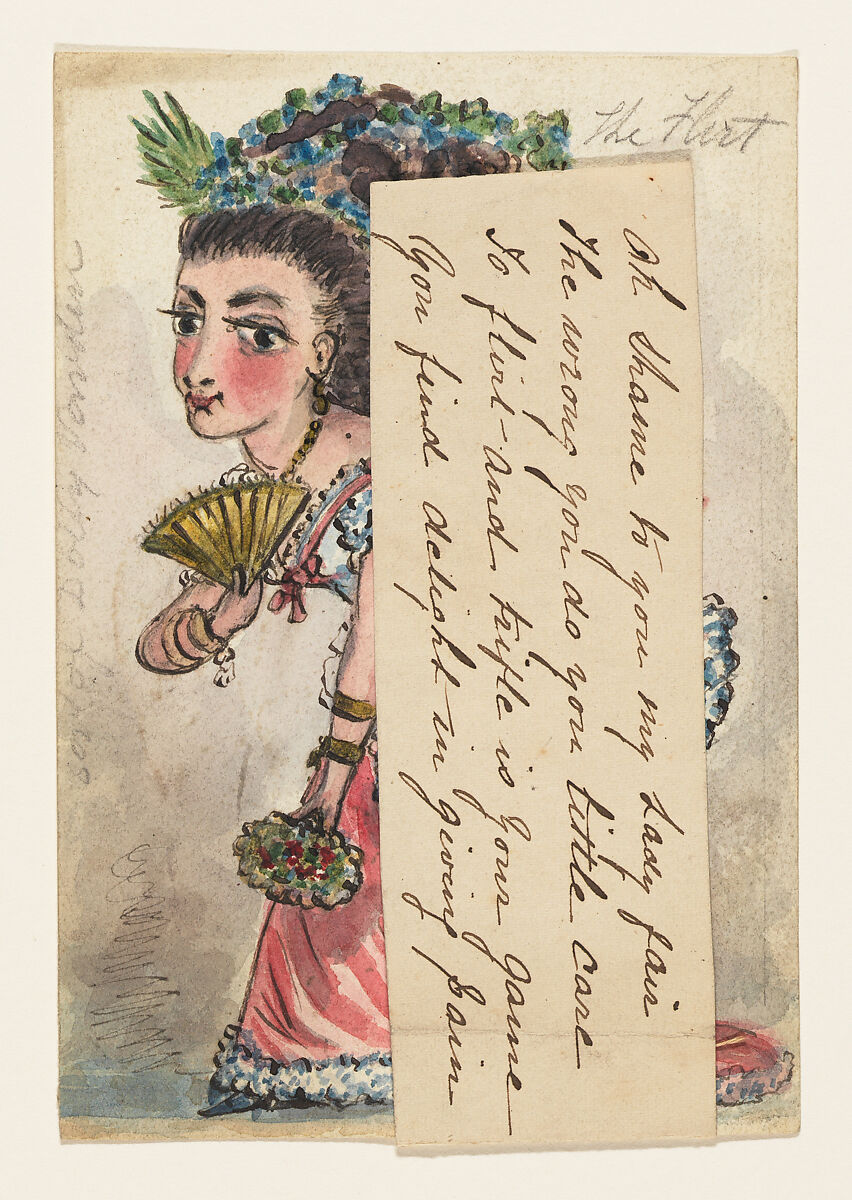 The Flirt
Oh Shame to you my Lady fair
The wrong you do you little care
To flirt and trifle is your game
You find delight in giving pain
sort of Dolly Varden